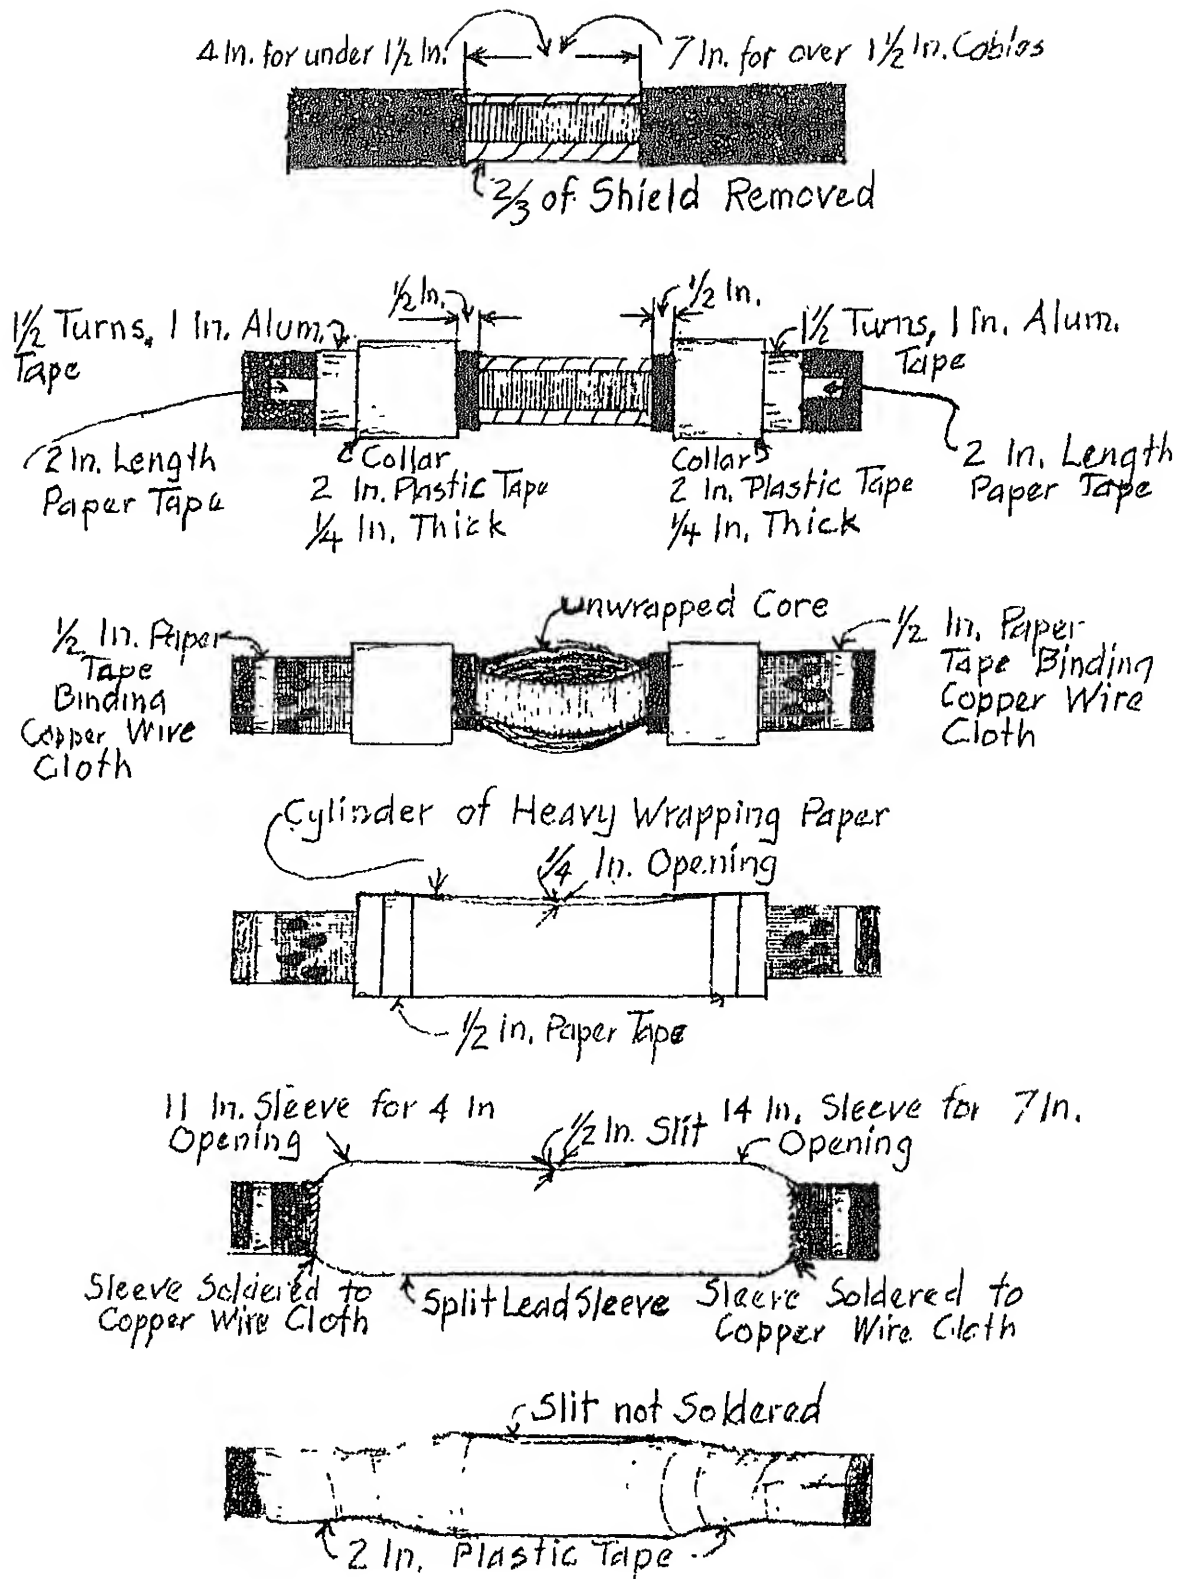 4 In. for under 1½ In.
7 In. for over 1½ In. Cables
2/3 of Shield Removed
½ In.
½ In.
1½ Turns, 1 In. Alum.
Tape
1½ Turns, 1 In. Alum.
Tape
2 In. Length
Paper Tape
Collar
2 In. Plastic Tape
¼ In. Thick
Collar
2 In. Plastic Tape
¼ In. Thick
2 In. Length
Paper Tape
Unwrapped Core
½ In. Paper
Tape
Binding
Copper Wire
Cloth
½ In. Paper
Tape Binding
Copper Wire
Cloth
Cylinder of Heavy Wrapping Paper
¼ In. Opening
½ In. Paper Tape
11 In. Sleeve for 4 In
Opening
½ In. Slit
14 In. Sleeve for 7 In.
Opening
Sleeve Soldered to
Copper Wire Cloth
Split Lead Sleeve
Sleeve Soldered to
Copper Wire Cloth
Slit not Soldered
2 In. Plastic Tape